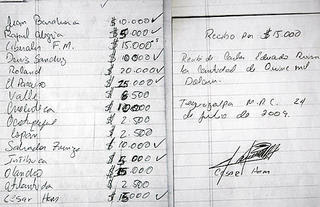 Juan Barahona $10.000
Rafael Alegria $5.000
Liberales F.M. $15.000
Denis Sanchez $10.000
Roland $20.000
El Paraiso $25.000
Valle $6.500
Choluteca $10.000
Ocotepeque $2.500
Copan $2.500
Salvador Zuniga $10.000
Intibuca $5.000
Olancho $5.000
Atlantida $2.500
Cesar Ham $15.000
Recibo por $15.000
Recibi de Carlos Eduardo Reina
la cantidad de Quince mil
Dolares.
Tegucigalpa M.D.C. 24
de Julio de 2009.
Cesar Ham